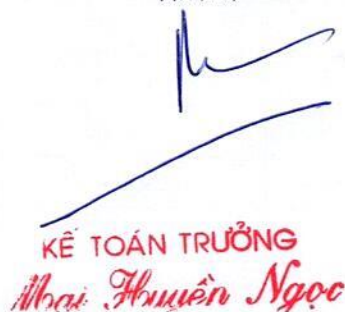 KẾ TOÁN TRƯỞNG
Mai Huyền Ngọc